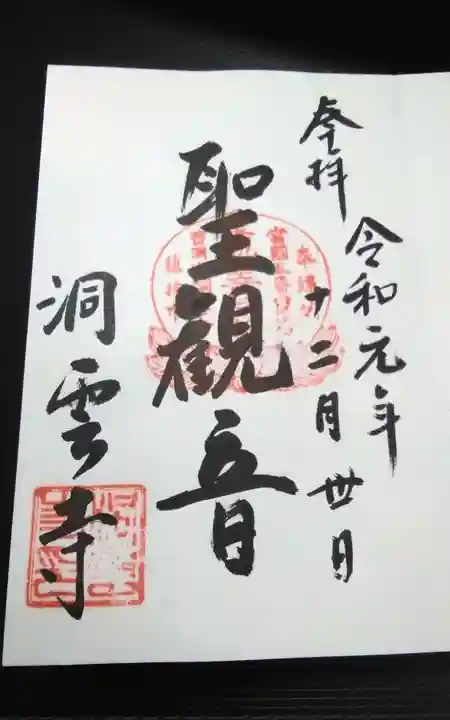 奉拝
令和元年
十二月丗日
聖観音
洞雲寺